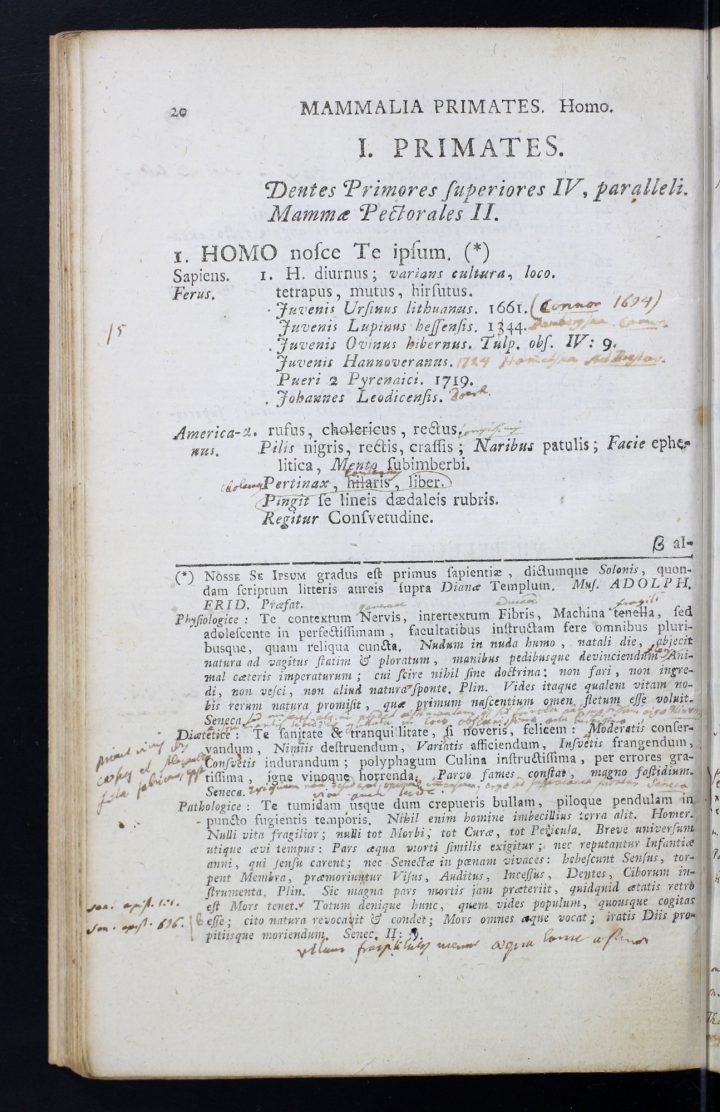 20 MAMMALIA PRIMATES. Homo.
I. PRIMATES.
Dentes Primores ſuperiores IV, paralleli.
Mammæ Pectorales II.
1. HOMO noſce Te ipſum. (*)
Sapiens. 1. H. diurnus; varians cultura, loco.
Ferus. tetrapus, mutus, hirſutus.
Juvenis Urſinus lithuanus. 1661. (Connor 1694)
15
Juvenis Lupinus heſſenſis. 1344.
Juvenis Ovinus hibernus. Tulp. obſ. IV: 9.
Juvenis Hannoveranus. 1724
Pueri 2 Pyrenaici. 1719.
Johannes Leodicenſis. Boerh.
America- 2. rufus, cholericus, rectus.
nus. Pilis nigris, rectis, craſſis; Naribus patulis; Facie ephe-
litica, Mento ſubimberbi.
Pertinax, hilaris, liber.
Pingit ſe lineis dædaleis rubris.
Regitur Conſvetudine.
β al-
(*) NOSSE SE IPSUM gradus eſt primus ſapientiæ, dictumque Solonis, quon-
dam ſcriptum litteris aureis ſupra Dianæ Templum. Muſ. ADOLPH.
FRID. Præfat.
Phyſiologice: Te contextum Nervis, intertextum Fibris, Machina tenella, ſed
adoleſcente in perfectiſſimam, facultatibus inſtructam fere omnibus pluri-
busque, quam reliqua cuncta. Nudum in nuda humo, natali die, abjecit
natura ad vagitus ſtatim & ploratum, manibus pedibusque devinciendum Ani-
mal cæteris imperaturum; cui ſcire nihil ſine doctrina: non fari, non ingre-
di, non veſci, non aliud naturæ ſponte. Plin. Vides itaque qualem vitam no-
bis rerum natura promiſit, quæ primum naſcentium omen fletum eſſe voluit.
Seneca.
Diætetice: Te ſanitate & tranquilitate, ſi noveris, felicem: Moderatis conſer-
vandum, Nimiis deſtruendum, Variatis afficiendum, Inſvetis frangendum,
Conſvetis indurandum; polyphagum Culina inſtructiſſima, per errores gra-
tiſſima, igne vinoque horrenda. Parvo fames conſtat, magno faſtidium.
Seneca.
Pathologice: Te tumidam usque dum crepueris bullam, piloque pendulam in
puncto fugientis temporis. Nihil enim homine imbecillius terra alit. Homer.
Nulli vita fragilior; nulli tot Morbi, tot Curæ, tot Pericula. Breve univerſum
utique ævi tempus: Pars æqua morti ſimilis exigitur; nec reputantur Infantiæ
anni, qui ſenſu carent; nec Senectæ in pœnam vivaces: hebeſcunt Senſus, tor-
pent Membra, præmoriuntur Viſus, Auditus, Inceſſus, Dentes, Ciborum in-
ſtrumenta. Plin. Sic magna pars mortis jam præteriit, quidquid ætatis retro
eſt Mors tenet. Totum denique hunc, quem vides populum, quousque cogitas
eſſe; cito natura revocavit & condet; Mors omnes æque vocat; iratis Diis pro-
pitiisque moriendum. Senec. II: